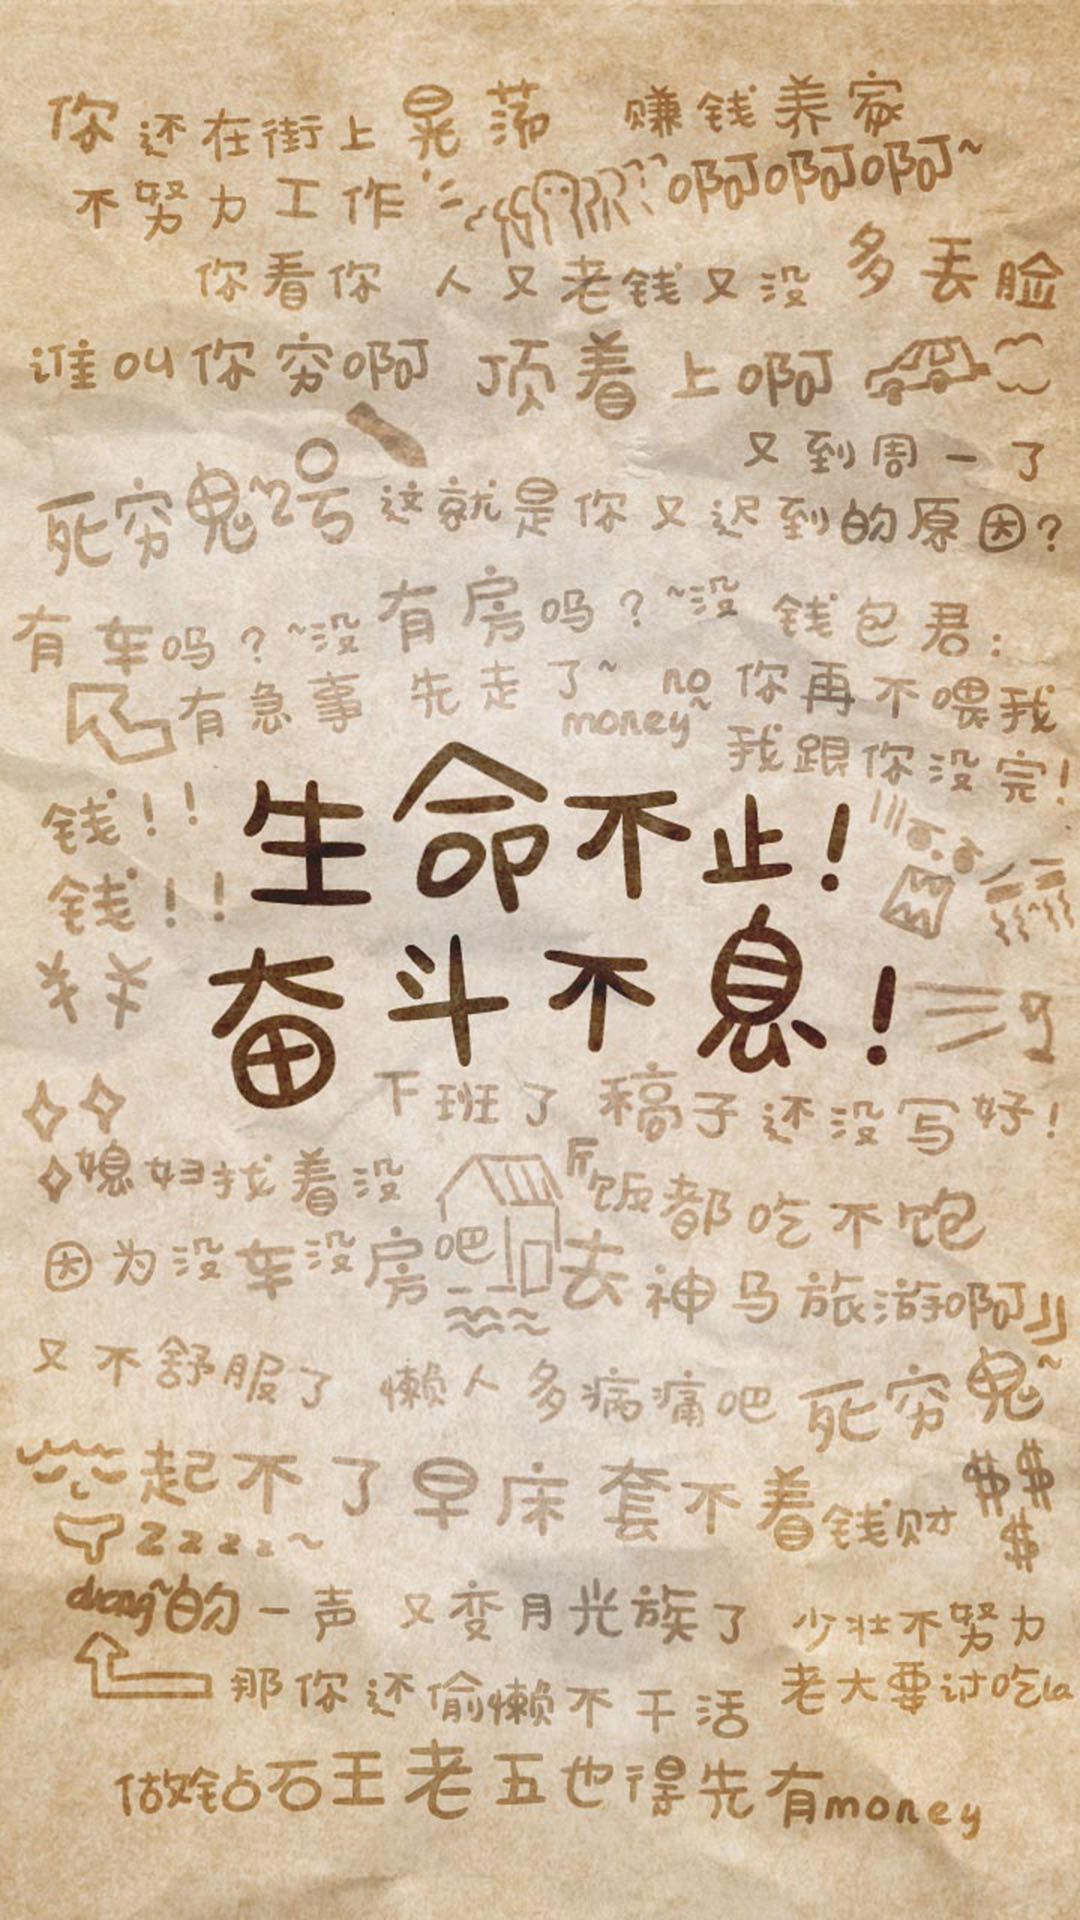 你还在街上晃荡 赚钱养家
不努力工作 啊啊啊~
你看你 人又老钱又没 多丢脸
谁叫你穷啊 顶着上啊
又到周一了
死穷鬼~2号 这就是你又迟到的原因?
有车吗?~没有房吗?~没 钱包君:
有急事 先走了~ no money~ 你再不喂我
我跟你没完!
钱!!
生命不止!
钱!!
¥¥
奋斗不息!
下班了 稿子还没写好!
媳妇找着没 饭都吃不饱
因为没车没房吧 去神马旅游啊
又不舒服了 懒人多病痛吧 死穷鬼~
起不了早床 套不着钱财 $$
$
zzzz~
dong~的一声 又变月光族了 少壮不努力
那你还偷懒不干活 老大要讨吃la
做钻石王老五也得先有money